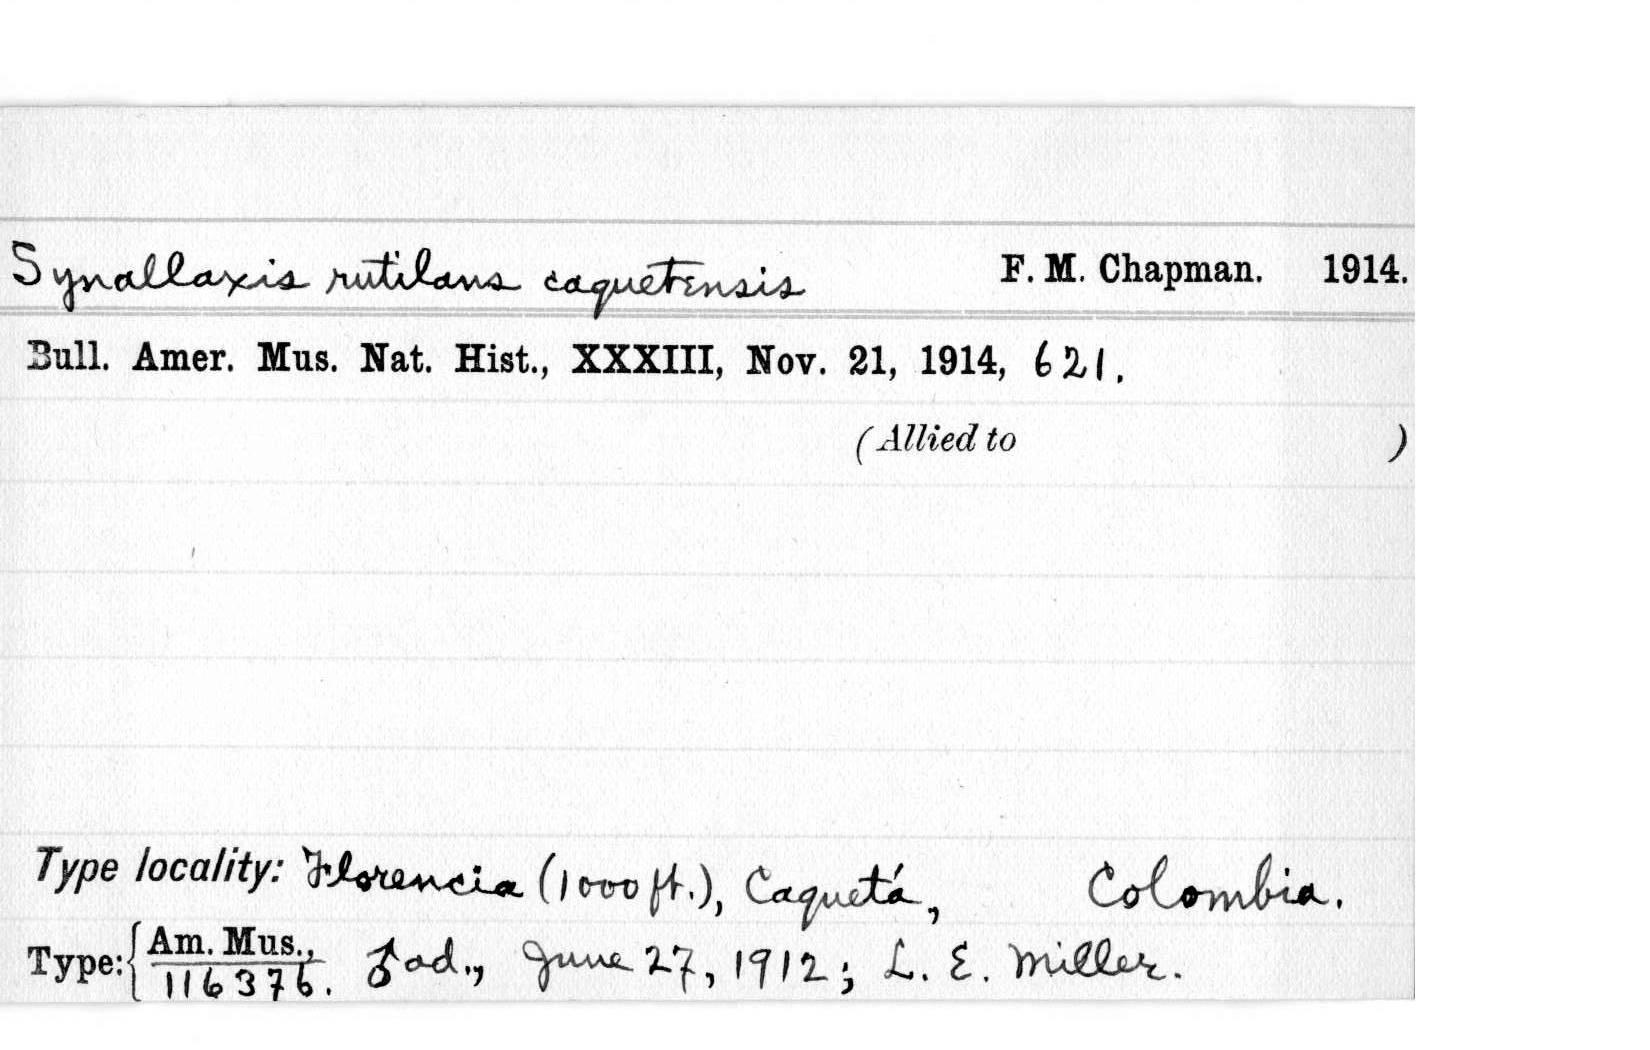 Synallaxis rutilans caquetensis F. M. Chapman. 1914.
Bull. Amer. Mus. Nat. Hist., XXXIII, Nov. 21, 1914, 621.
(Allied to )
Type locality: Florencia (1000 ft.), Caquetá, Colombia.
Type: { Am. Mus., 116376. ♂ ad., June 27, 1912; L. E. Miller.